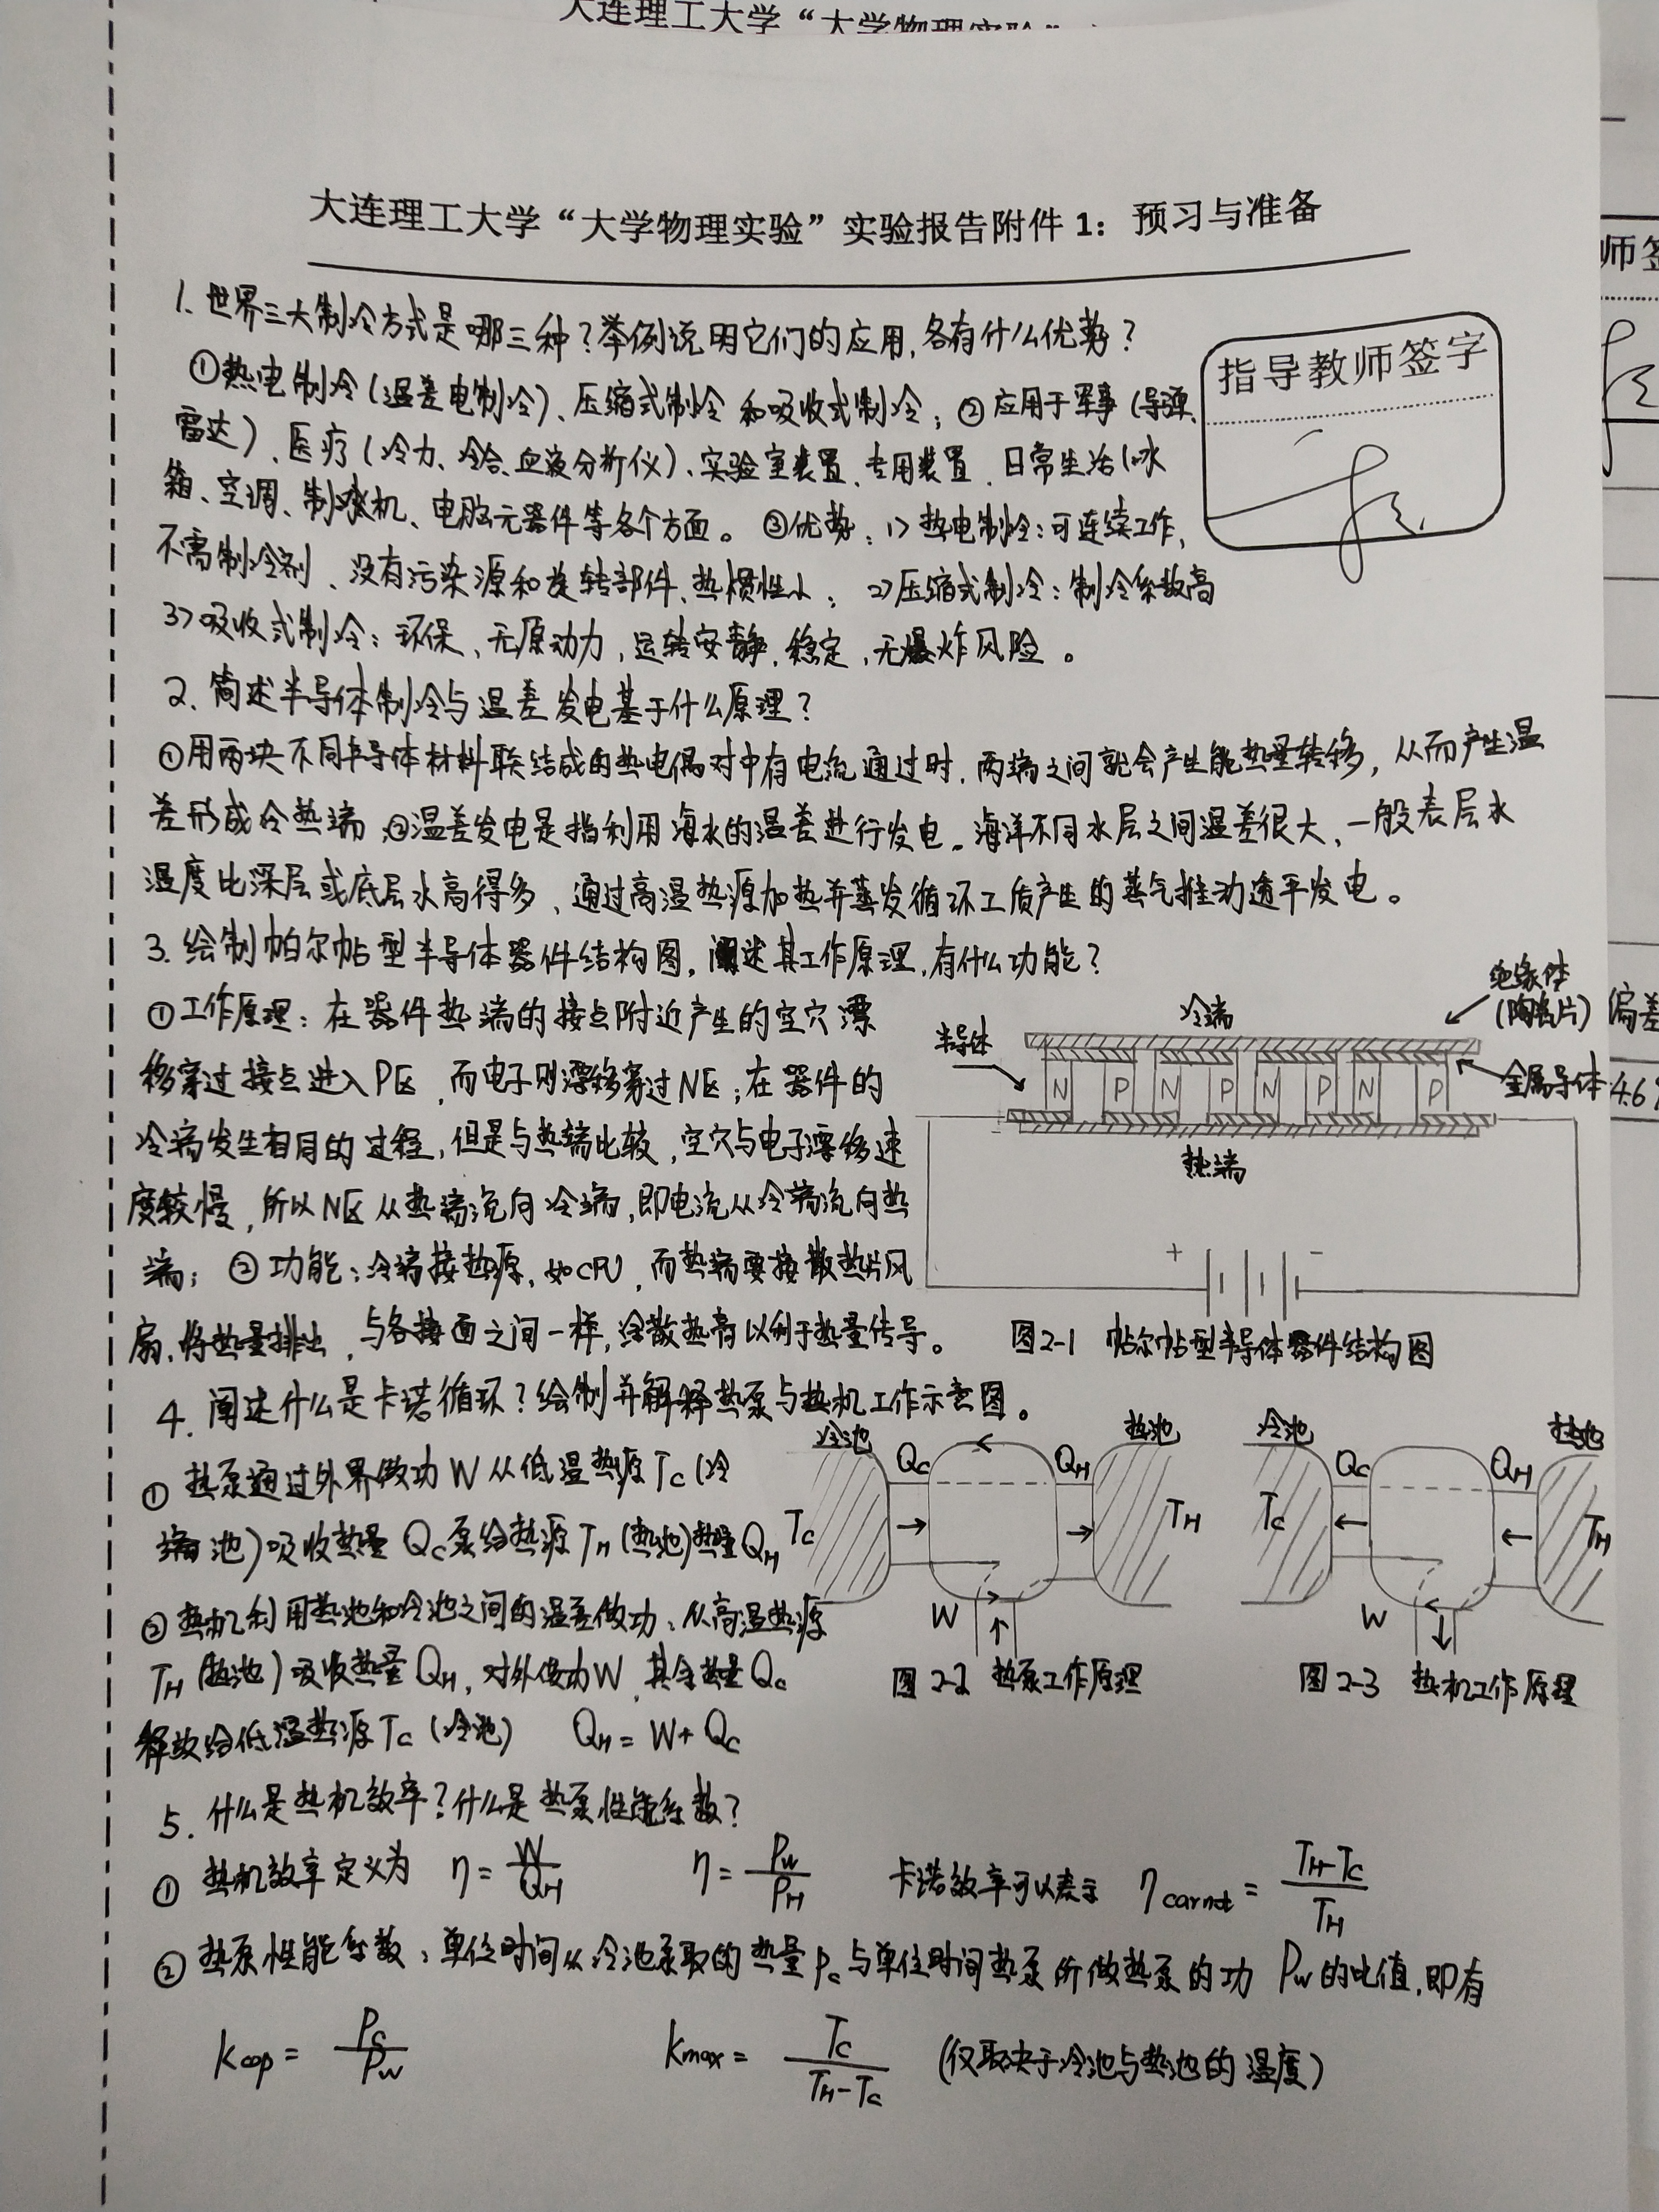 大连理工大学“大学物理实验”
大连理工大学“大学物理实验”实验报告附件1：预习与准备
1. 世界三大制冷方式是哪三种？举例说明它们的应用，各有什么优势？
①热电制冷（温差电制冷）、压缩式制冷和吸收式制冷；②应用于军事（导弹、
雷达）、医疗（冷力、冷合、血液分析仪）、实验室装置、专用装置、日常生活（冰
箱、空调、制冰机、电脑元器件等各个方面。③优势：1>热电制冷：可连续工作，
不需制冷剂、没有污染源和旋转部件、热惯性小； 2>压缩式制冷：制冷系数高
3>吸收式制冷：环保、无原动力，运转安静，稳定，无爆炸风险。
指导教师签字
2. 简述半导体制冷与温差发电基于什么原理？
①用两块不同半导体材料联结成的热电偶对中有电流通过时，两端之间就会产生能热量转移，从而产生温
差形成冷热端 ②温差发电是指利用海水的温差进行发电。海洋不同水层之间温差很大，一般表层水
温度比深层或底层水高得多，通过高温热源加热并蒸发循环工质产生的蒸气推动透平发电。
3. 绘制帕尔帖型半导体器件结构图，阐述其工作原理，有什么功能？
①工作原理：在器件热端的接点附近产生的空穴漂
移穿过接点进入P区，而电子则漂移穿过N区；在器件的
冷端发生相同的过程，但是与热端比较，空穴与电子漂移速
度较慢，所以N区从热端流向冷端，即电流从冷端流向热
端；②功能：冷端接热源，如CPU，而热端要接散热片风
扇，将热量排出，与各接面之间一样，涂散热膏以利于热量传导。
半导体
冷端
绝缘体
（陶瓷片）
金属导体
N P N P N P N P
热端
+ -
图2-1 帕尔帖型半导体器件结构图
4. 阐述什么是卡诺循环？绘制并解释热泵与热机工作示意图。
① 热泵通过外界做功W从低温热源Tc（冷
端池）吸收热量Qc泵给热源TH（热池）热量QH
②热机利用热池和冷池之间的温差做功，从高温热源
TH（热池）吸收热量QH，对外做功W，其余热量Qc
释放给低温热源Tc（冷池） QH = W + Qc
冷池 Qc QH 热池
Tc TH
W
图2-2 热泵工作原理
冷池 Qc QH 热池
Tc TH
W
图2-3 热机工作原理
5. 什么是热机效率？什么是热泵性能系数？
① 热机效率定义为 η = W/QH η = Pw/PH 卡诺效率可以表示 ηcarnot = (TH-Tc)/TH
② 热泵性能系数：单位时间从冷池泵取的热量Pc与单位时间热泵所做热泵的功Pw的比值，即有
kcop = Pc/Pw kmax = Tc/(TH-Tc) （仅取决于冷池与热池的温度）
师签
偏差
4.6